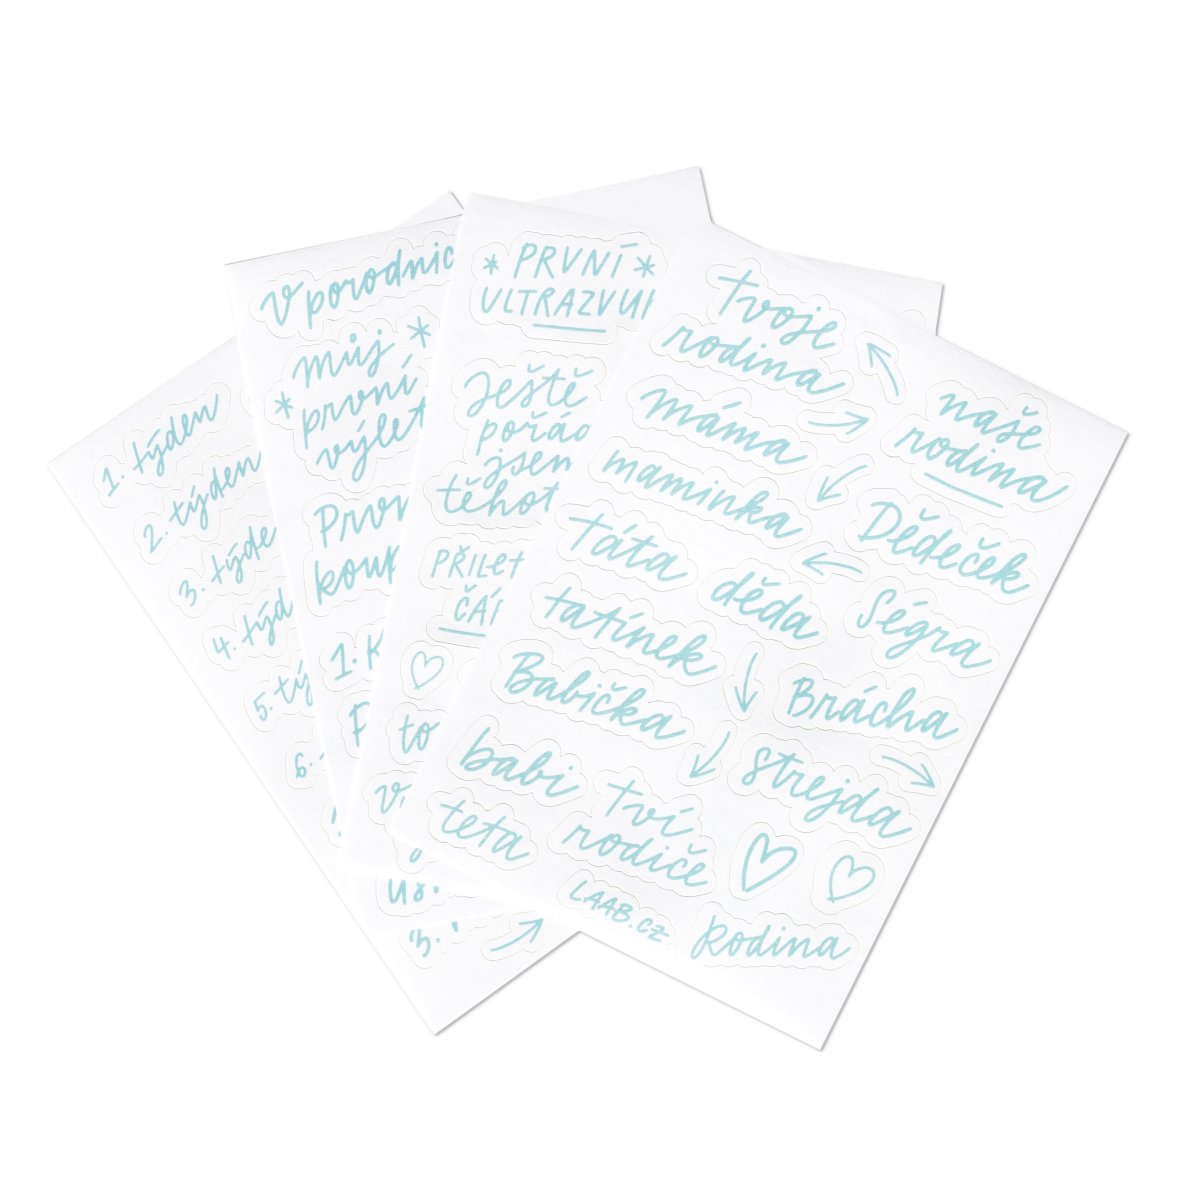 1. týden
2. týden
3. týde
4. týd
5. tý
6.
V porodnic
* můj *
první
výlet
Prvn
koup
1. K
* PRVNÍ *
ULTRAZVUK
Ještě
pořád
jsem
těhot
PŘILET
ČÁP
to
tvoje
rodina
naše
rodina
máma
maminka
Dědeček
táta
děda
Ségra
tatínek
Babička
Brácha
babi
strejda
teta
tví
rodiče
LAAB.CZ
Rodina
3.